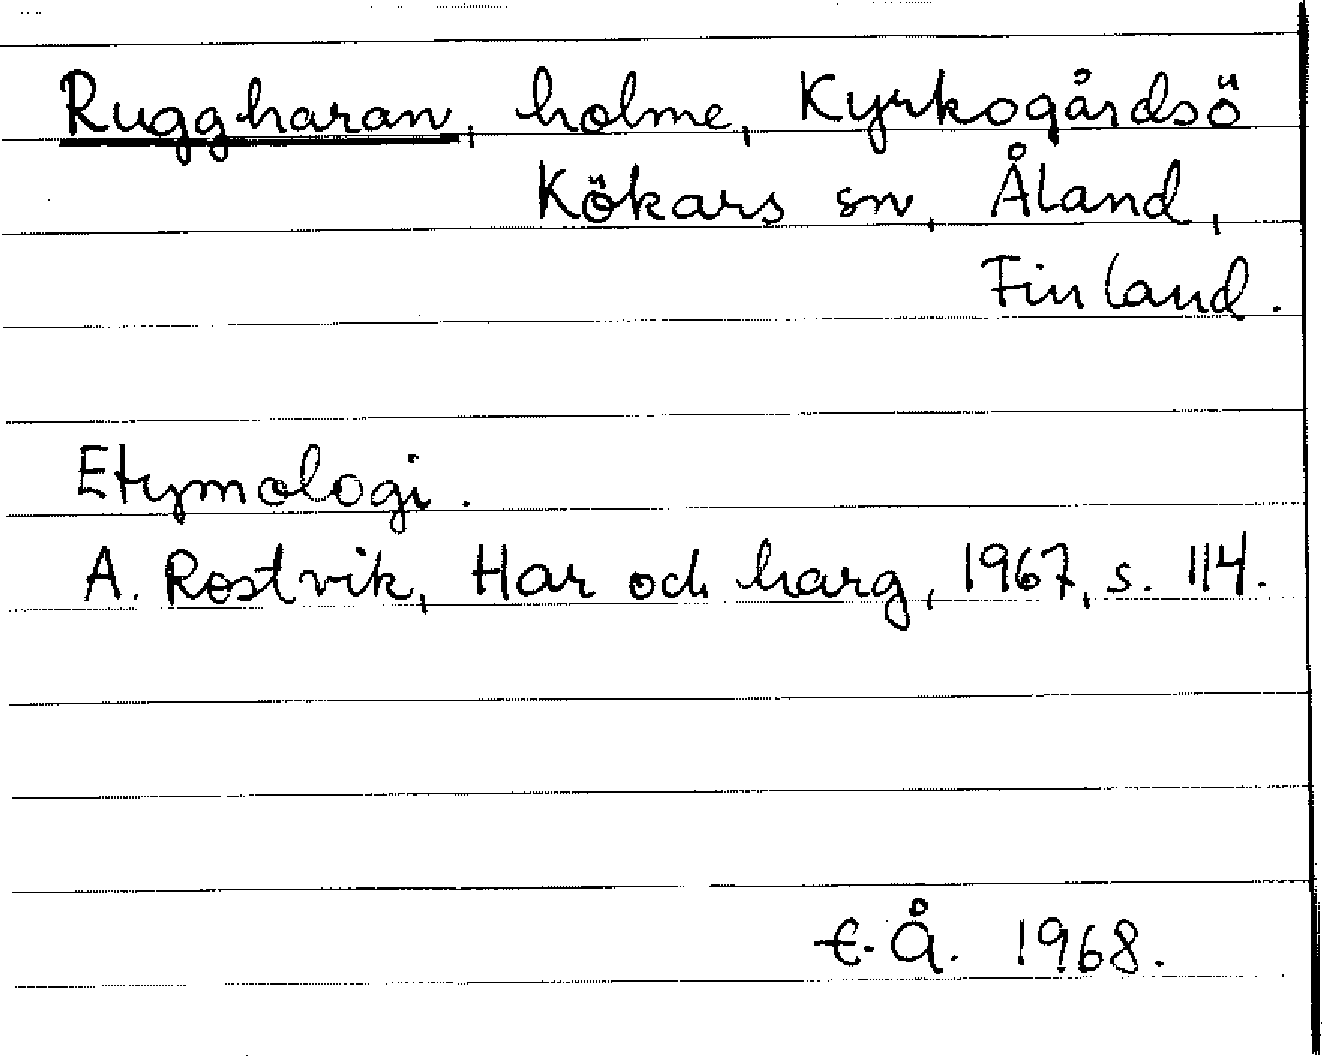 Ruggharan, holme, Kyrkogårdsö
Kökars sn, Åland,
Finland.
Etymologi.
A. Rostvik, Har och harg, 1967, s. 114.
E. Å. 1968.